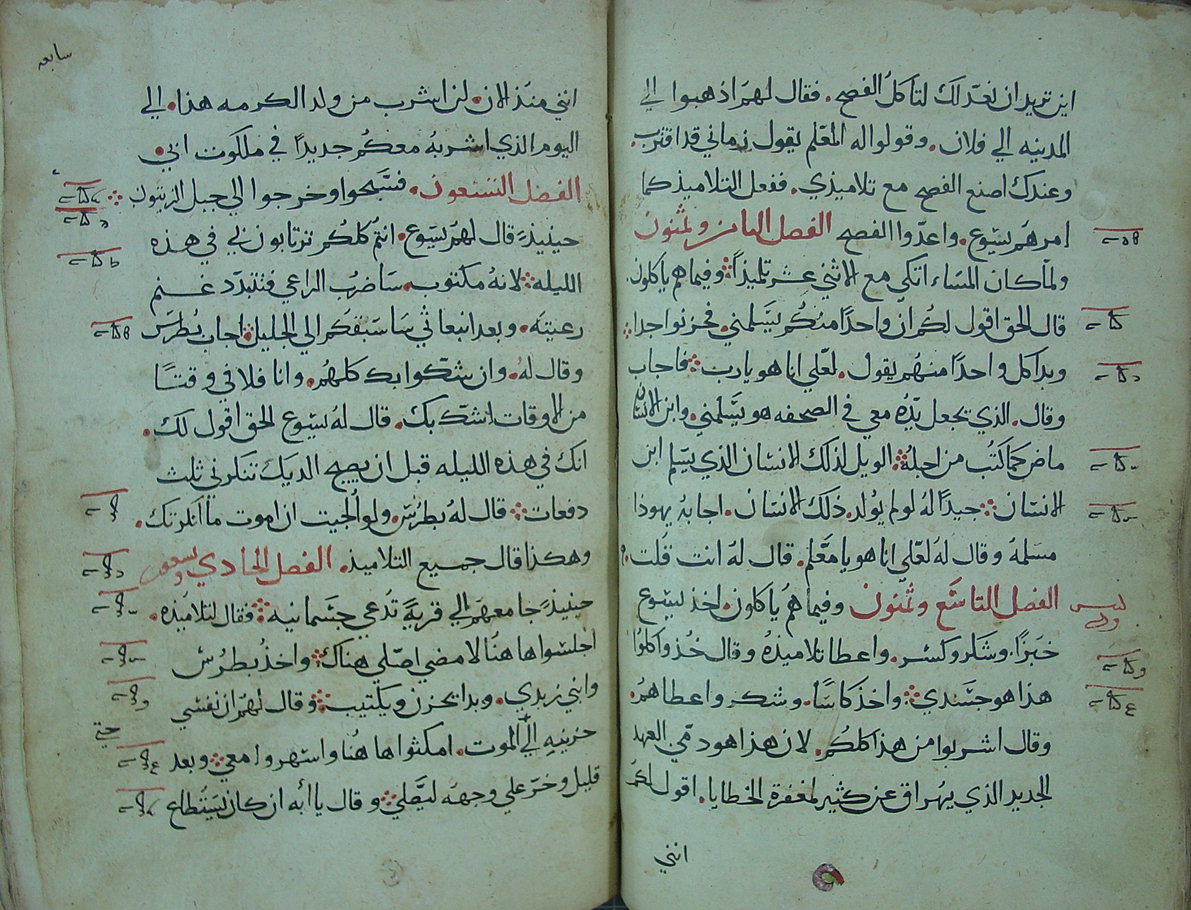 اين تريد ان نعد لك لتاكل الفصح. فقال لهم اذهبوا الي
المدينه الي فلان. وقولوا له المعلم يقول زماني قد اقترب.
وعندك اصنع الفصح مع تلاميذي. ففعل التلاميذ كما
امرهم يسوع. واعدّوا الفصح الفصل الثامن وثمنون
ولما كان المساء اتكي مع الاثني عشر تلميذاً وفيما هم ياكلون.
قال الحق اقول لكم ان واحداً منكم يسلمني. فحزنوا جدا
وبدا كل واحداً منهم يقول. لعلي انا هو يا رب فاجاب
وقال. الذي يجعل يده معي في الصحفه هو يسلمني. وابن الانسان
ماض كما كتب من اجله الويل لذلك الانسان الذي يسلم ابن
الانسان جيداً له لو لم يولد. ذلك الانسان. اجابه يهوذا
مسلمه وقال له لعلي انا هو يا معلم. قال له انت قلت.
الفصل التاسع وثمنون وفيما هم ياكلون. اخذ يسوع
خبزاً. وشكر وكسر. واعطا تلاميذه وقال خذوا كلوا
هذا هو جسدي واخذ كاساً. وشكر واعطاهم.
وقال اشربوا من هذا كلكم. لان هذا هو دمي العهد
الجديد الذي يهراق عن كثير لمغفرة الخطايا. اقول لكم
انني
سابعه
انني منذ الان. لن اشرب من ولد الكرمه هذا. الي
اليوم الذي اشربه معكم جديداً في ملكوت ابي.
الفصل التسعون. فسبحوا وخرجوا الي جبل الزيتون
حينيذٍ قال لهم يسوع. انتم كلكم ترتابون بي في هذه
الليله لانه مكتوب. ساضرب الراعي فتتبدد غنم
رعيته. وبعد انبعاثي ساسبقكم الي الجليل اجاب بطرس
وقال له. وان شكوا بك كلهم. وانا فلا في وقتاً
من الاوقات اشك بك. قال له يسوع الحق اقول لك.
انك في هذه الليله قبل ان يصيح الديك تنكرني ثلث
دفعات قال له بطرس. ولو الجيت ان اموت ما انكرتك.
وهكذا قال جميع التلاميذ. الفصل الحادي وتسعون
حينيذٍ جا معهم الي قرية تدعي جتسمانيه فقال لتلاميذه.
اجلسوا هاهنا لامضي اصلي هناك واخذ بطرس
وابني زبدي. وبدا يحزن ويكتيب وقال لهم ان نفسي
حزينه الي الموت. امكثوا هاهنا واسهروا معي وبعد
قليل وخرّ علي وجهه ليصلي وقال يا ابه ان كان يستطاع